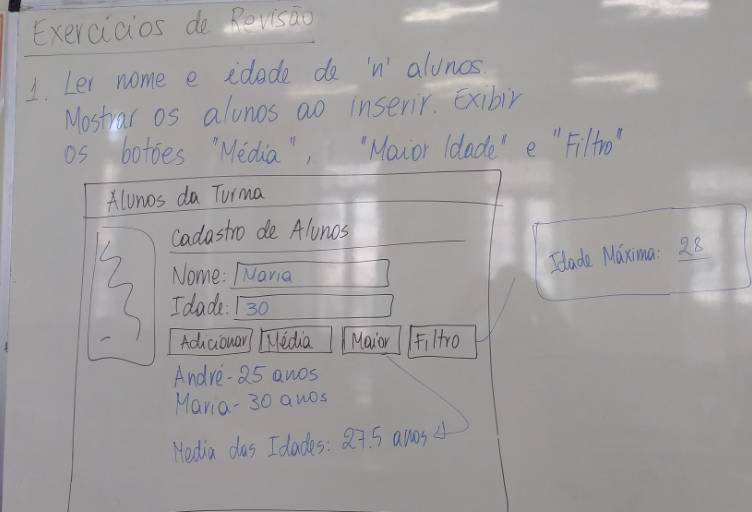 Exercícios de Revisão
1. Ler nome e idade de 'n' alunos.
Mostrar os alunos ao inserir. Exibir
os botões "Média", "Maior Idade" e "Filtro"
Alunos da Turma
Cadastro de Alunos
Nome: Maria
Idade: 30
Adicionar Média Maior Filtro
André - 25 anos
Maria - 30 anos
Media das Idades: 27.5 anos
Idade Máxima: 28